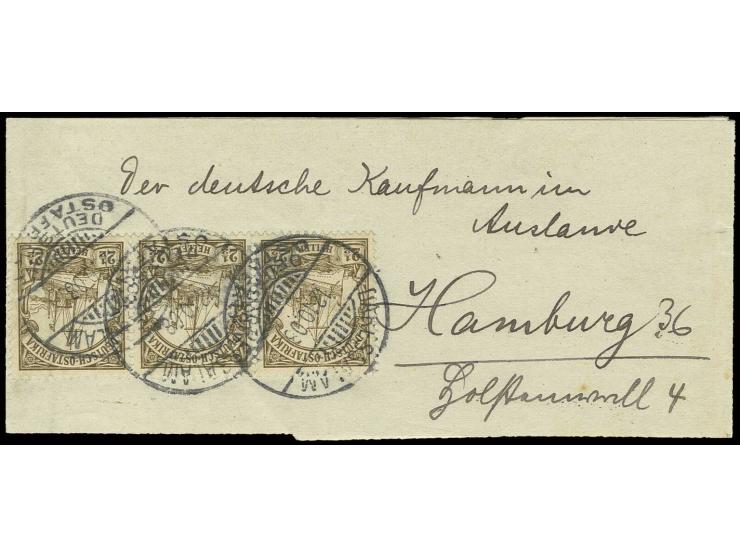 Der deutsche Kaufmann im
Auslande
Hamburg 36
Holstenwall 4
2½ HELLER 2½
2½ HELLER 2½
2½ HELLER
DEUTSCH-OSTAFRIKA
DEUTSCH-OSTAFRIKA
DEUTSCH-OSTAFRIKA